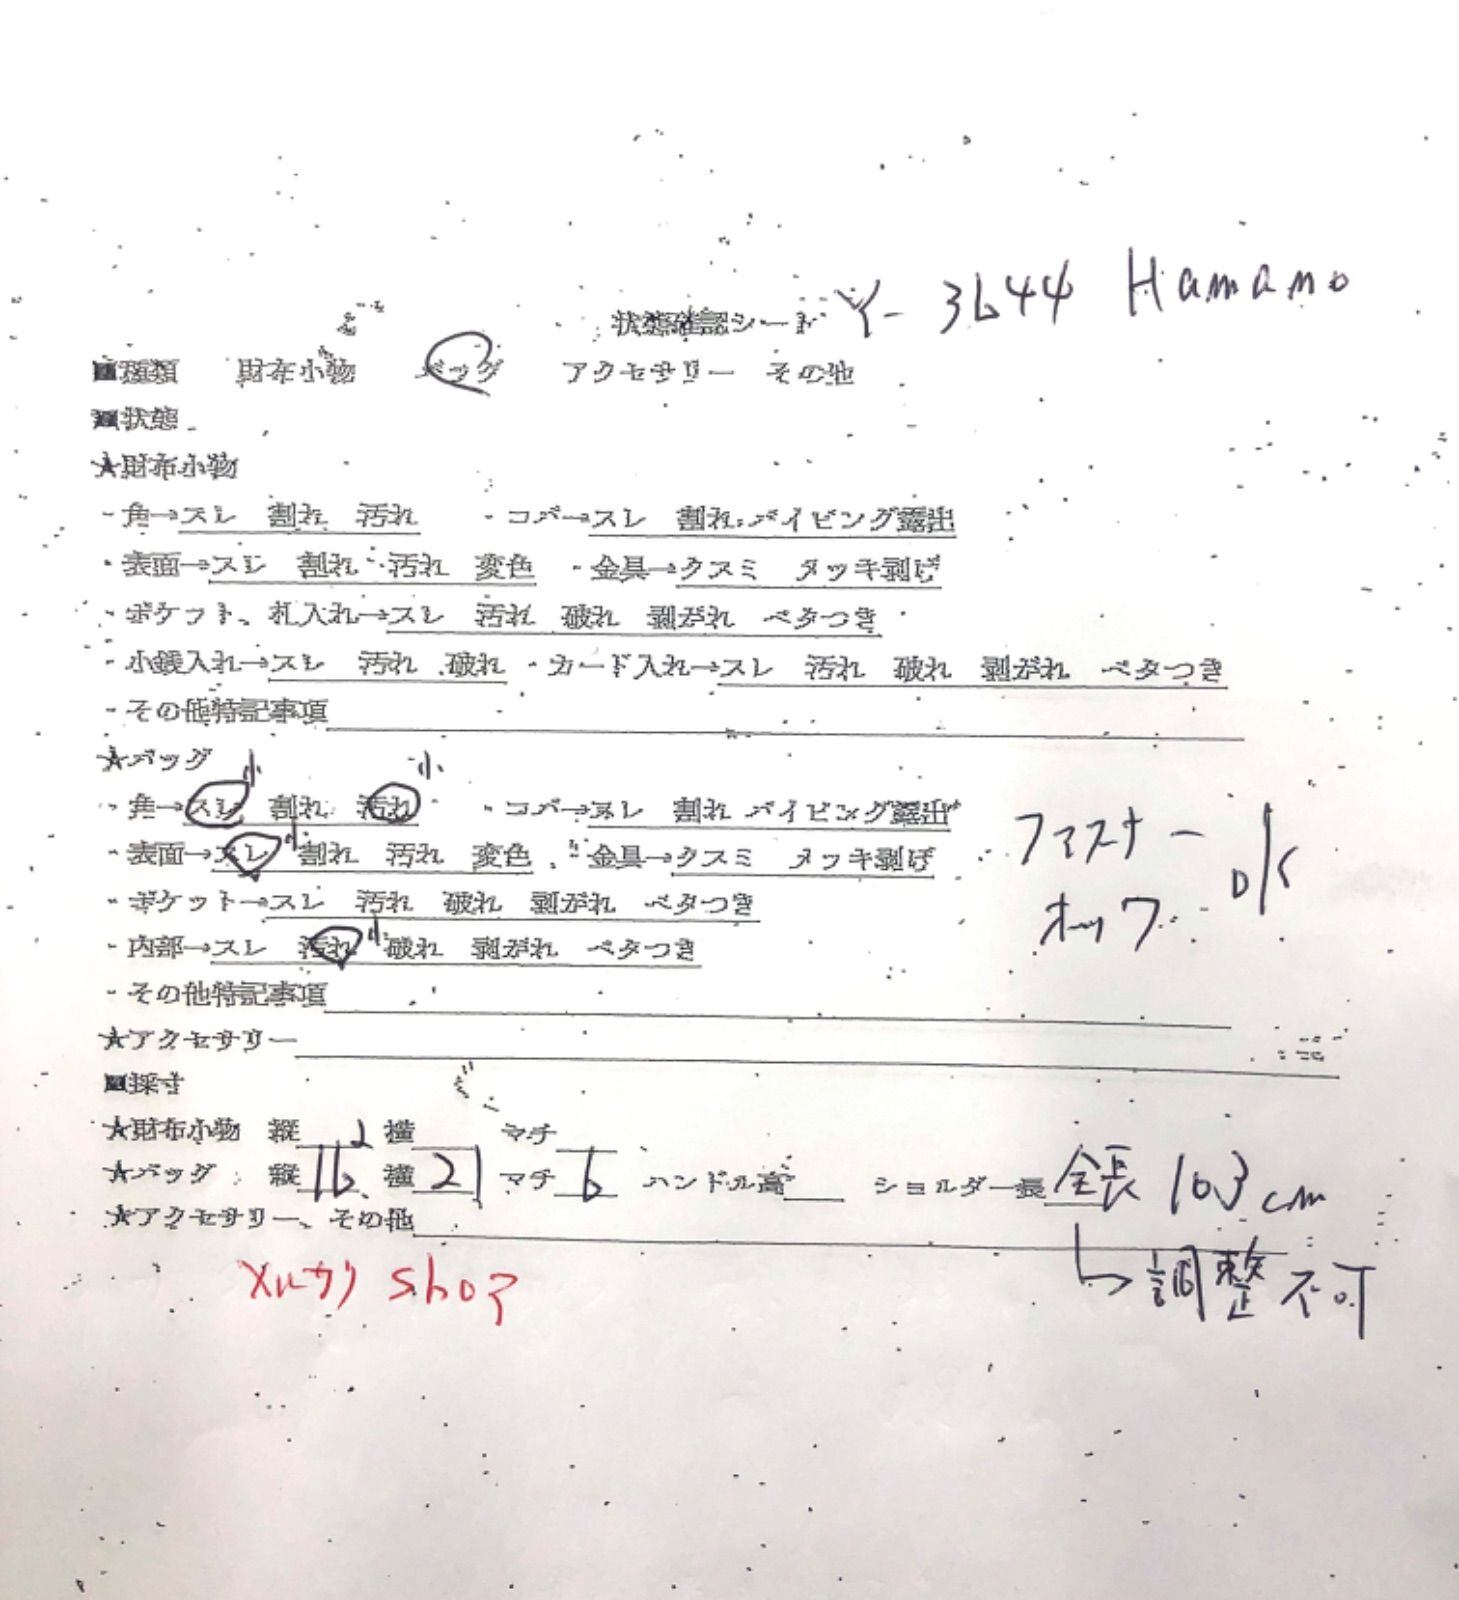 状態確認シート Y-3644 Hamano
■種類 財布小物 バッグ アクセサリー その他
■状態
★財布小物
・角→スレ 割れ 汚れ ・コバ→スレ 割れ パイピング露出
・表面→スレ 割れ 汚れ 変色 ・金具→クスミ メッキ剥げ
・ポケット、札入れ→スレ 汚れ 破れ 剥がれ ベタつき
・小銭入れ→スレ 汚れ 破れ ・カード入れ→スレ 汚れ 破れ 剥がれ ベタつき
・その他特記事項
★バッグ
小 小
・角→スレ 割れ 汚れ ・コバ→スレ 割れ パイピング露出
・表面→スレ 小 割れ 汚れ 変色 ・金具→クスミ メッキ剥げ
ファスナー
ホック OK
・ポケット→スレ 汚れ 破れ 剥がれ ベタつき
・内部→スレ 汚れ 小 破れ 剥がれ ベタつき
・その他特記事項
★アクセサリー
■採寸
★財布小物 縦 横 マチ
★バッグ 縦 16 横 21 マチ 6 ハンドル高 ショルダー長 全長 103cm
★アクセサリー、その他
↳調整不可
メルカリ shop